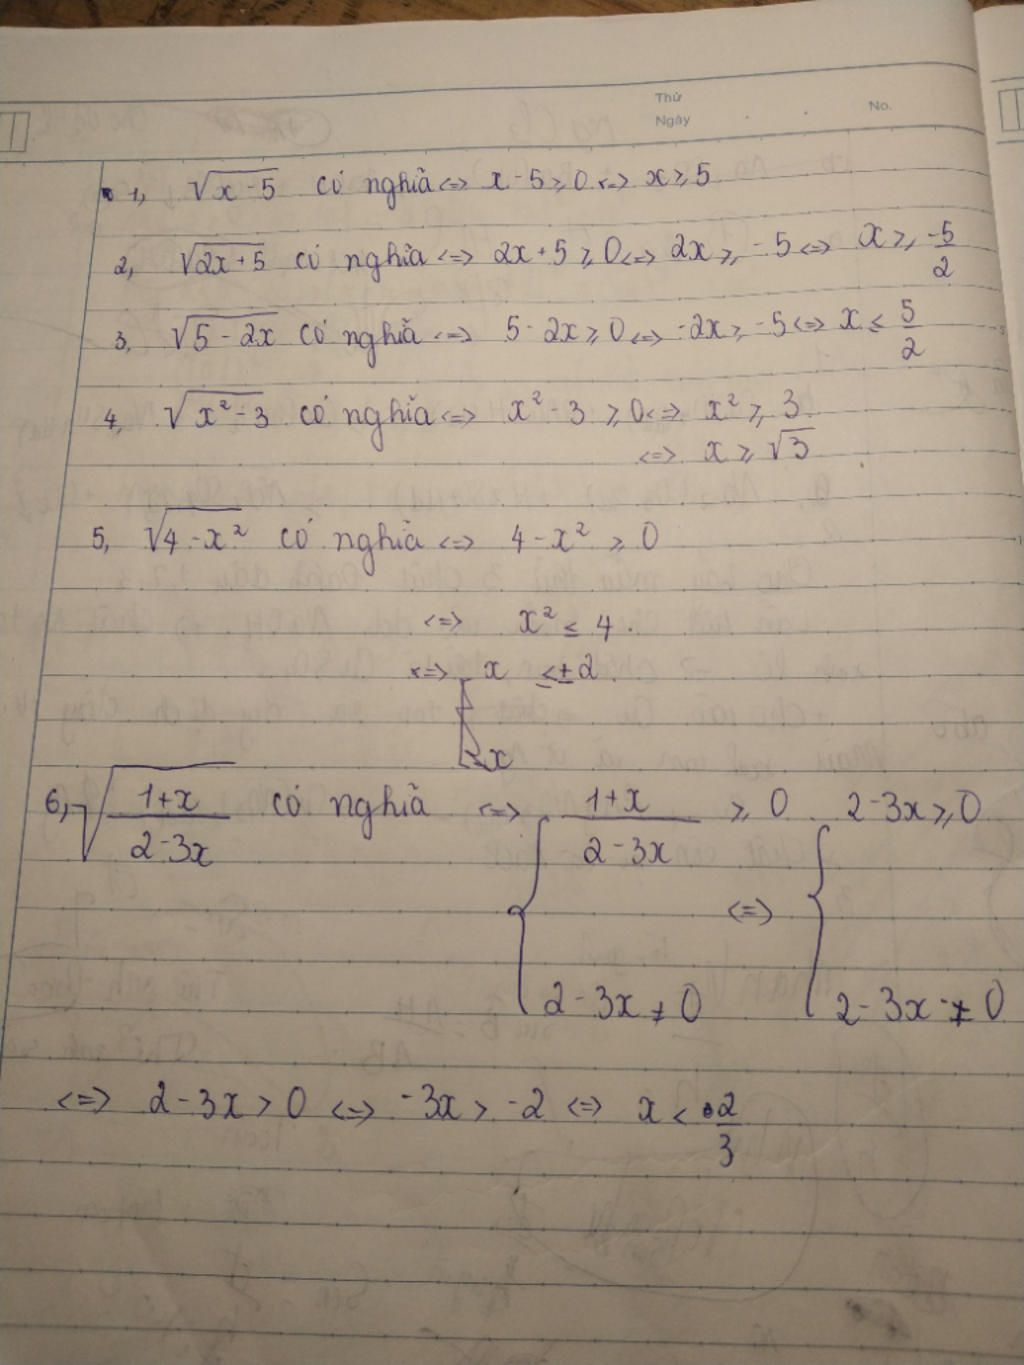 Thứ
Ngày
No.
1, √(x-5) có nghĩa <=> x-5 ⩾ 0 <=> x ⩾ 5
2, √(2x+5) có nghĩa <=> 2x+5 ⩾ 0 <=> 2x ⩾ -5 <=> x ⩾ -5/2
3, √(5-2x) có nghĩa <=> 5-2x ⩾ 0 <=> -2x ⩾ -5 <=> x ≤ 5/2
4, √(x²-3) có nghĩa <=> x²-3 ⩾ 0 <=> x² ⩾ 3
<=> x ⩾ √3
5, √(4-x²) có nghĩa <=> 4-x² ⩾ 0
<=> x² ≤ 4.
<=> x ≤ ±2
x
6, √((1+x)/(2-3x)) có nghĩa <=> { (1+x)/(2-3x) ⩾ 0 <=> { 2-3x ⩾ 0
2-3x ≠ 0 2-3x ≠ 0
<=> 2-3x > 0 <=> -3x > -2 <=> x < 2/3